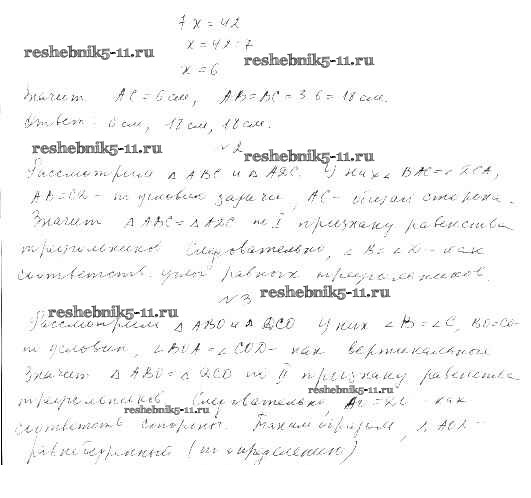 7x = 42
x = 42:7
reshebnik5-11.ru
reshebnik5-11.ru
x = 6
Значит AC = 6 см, AB = BC = 3·6 = 18 см.
Ответ: 6 см, 18 см, 18 см.
reshebnik5-11.ru
№2
reshebnik5-11.ru
Рассмотрим △ABC и △ADC. У них ∠BAC = ∠DCA,
AB = CD - по условию задачи, AC - общая сторона.
Значит △ABC = △ADC по I признаку равенства
треугольников. Следовательно, ∠B = ∠D - как
соответств. углы равных треугольников.
№3
reshebnik5-11.ru
reshebnik5-11.ru
Рассмотрим △ABO и △DCO. У них ∠B = ∠C, BO = CO -
по условию, ∠BOA = ∠COD - как вертикальные
Значит △ABO = △DCO по II признаку равенства
reshebnik5-11.ru
треугольников. Следовательно, как
reshebnik5-11.ru
соответств. стороны. Таким образом, △AOD -
равнобедренный (по определению)